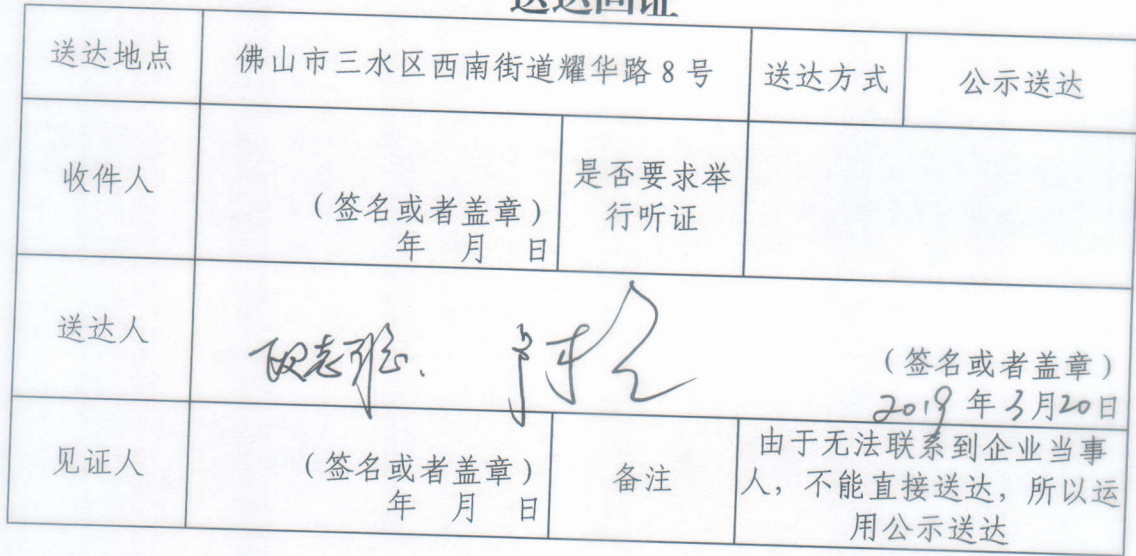 送达回证
送达地点 佛山市三水区西南街道耀华路8号 送达方式 公示送达
收件人 (签名或者盖章) 年 月 日 是否要求举行听证
送达人
(签名或者盖章)
2019年3月20日
见证人 (签名或者盖章) 年 月 日 备注
由于无法联系到企业当事
人，不能直接送达，所以运
用公示送达